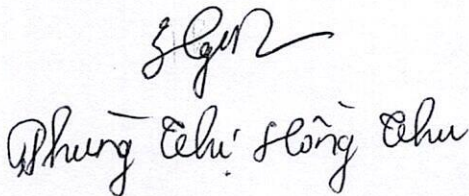 Phùng Thị Hồng Thu